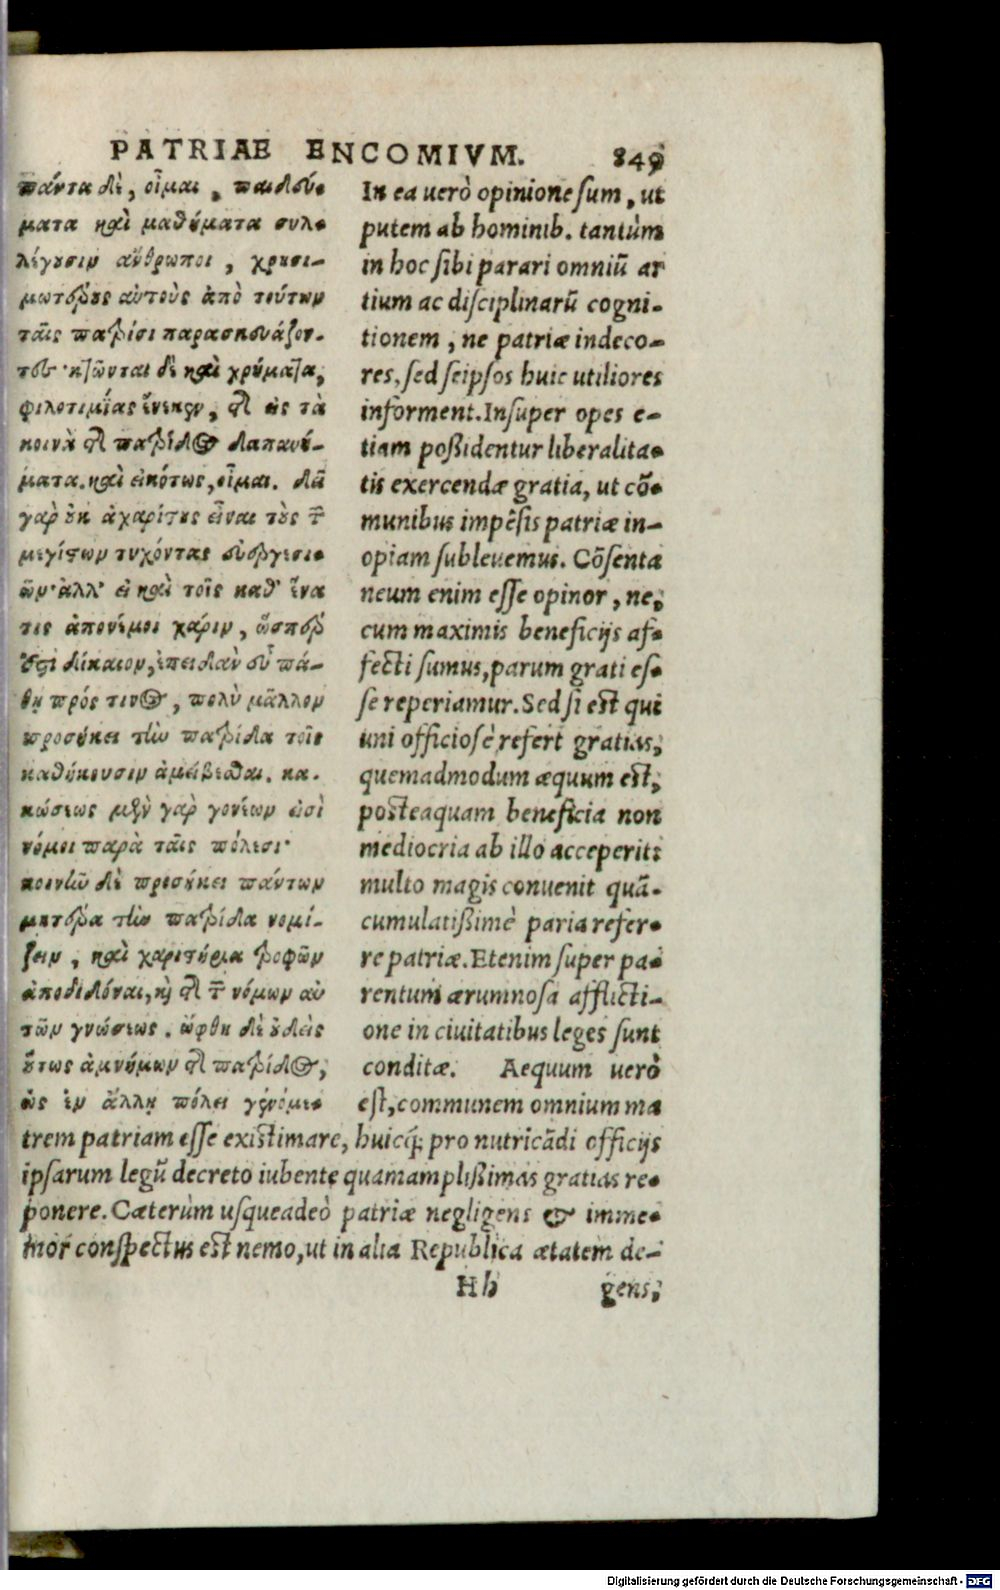 PATRIAE ENCOMIVM. 849
πάντα δὲ, οἶμαι, παιδεύ-
ματα καὶ μαθήματα συλ-
λέγουσιν ἄνθρωποι, χρησι-
μωτέρους αὑτοὺς ἀπὸ τούτων
ταῖς πατρίσι παρασκευάζον-
τες· κτῶνται δὲ καὶ χρήματα,
φιλοτιμίας ἕνεκεν, τῆς εἰς τὰ
κοινὰ τῆς πατρίδος δαπανή-
ματα. καὶ εἰκότως, οἶμαι. δεῖ
γὰρ οὐκ ἀχαρίστους εἶναι τοὺς τῶν
μεγίστων τυχόντας εὐεργεσι-
ῶν· ἀλλ' εἰ καὶ τοῖς καθ' ἕνα
τις ἀπονέμοι χάριν, ὥσπερ
ἐστὶ δίκαιον, ἐπειδὰν εὖ πά-
θῃ πρός τινος, πολὺ μᾶλλον
προσήκει τὴν πατρίδα τοῖς
καθήκουσιν ἀμείβεσθαι. κα-
κώσεως μὲν γὰρ γονέων εἰσὶ
νόμοι παρὰ ταῖς πόλεσι·
κοινὴν δὲ προσήκει πάντων
μητέρα τὴν πατρίδα νομί-
ζειν, καὶ χαριστήρια τροφῶν
ἀποδιδόναι, καὶ τῆς τῶν νόμων αὐ
τῶν γνώσεως. ὤφθη δὲ οὐδεὶς
οὕτως ἀμνήμων τῆς πατρίδος,
ὡς ἐν ἄλλῃ πόλει γενόμε-
In ea uerò opinione sum, ut
putem ab hominib. tantùm
in hoc sibi parari omniū ar
tium ac disciplinarū cogni-
tionem, ne patriæ indeco-
res, sed seipsos huic utiliores
informent. Insuper opes e-
tiam possidentur liberalita-
tis exercendæ gratia, ut cō-
munibus impēsis patriæ in-
opiam subleuemus. Cōsenta
neum enim esse opinor, ne,
cum maximis beneficijs af-
fecti sumus, parum grati es-
se reperiamur. Sed si est qui
uni officiosè refert gratias,
quemadmodum æquum est,
posteaquam beneficia non
mediocria ab illo acceperit:
multo magis conuenit quā-
cumulatissimè paria refer-
re patriæ. Etenim super pa-
rentum ærumnosa afflicti-
one in ciuitatibus leges sunt
conditæ. Aequum uerò
est, communem omnium ma
trem patriam esse existimare, huicq́; pro nutricādi officijs
ipsarum legū decreto iubente quamamplissimas gratias re-
ponere. Cæterùm usqueadeò patriæ negligens & imme-
mor conspectus est nemo, ut in alia Republica ætatem de-
Hh gens,
Digitalisierung gefördert durch die Deutsche Forschungsgemeinschaft - DFG